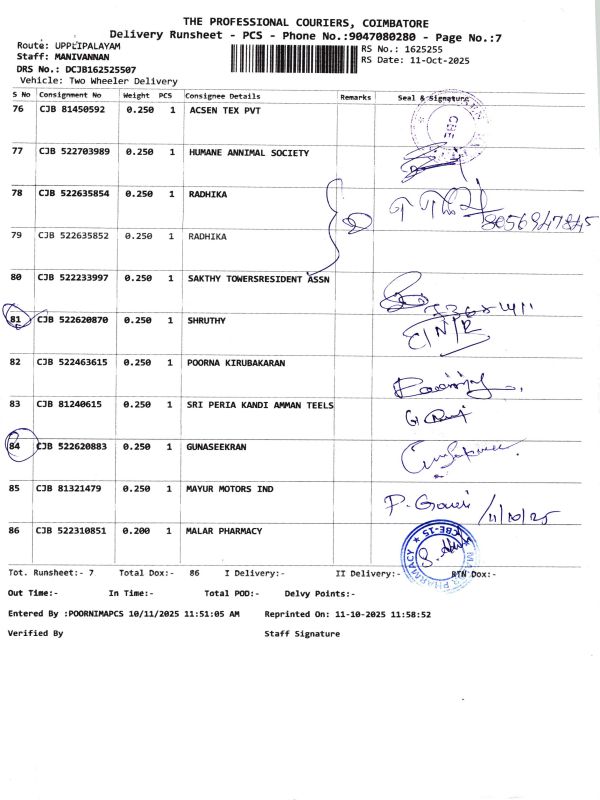 THE PROFESSIONAL COURIERS, COIMBATORE
Delivery Runsheet - PCS - Phone No.:9047080280 - Page No.:7
Route: UPPLIPALAYAM
Staff: MANIVANNAN
DRS No.: DCJB162525507
Vehicle: Two Wheeler Delivery
RS No.: 1625255
RS Date: 11-Oct-2025
S No Consignment No Weight PCS Consignee Details Remarks Seal & Signature
76 CJB 81450592 0.250 1 ACSEN TEX PVT
CBE
77 CJB 522703989 0.250 1 HUMANE ANNIMAL SOCIETY
78 CJB 522635854 0.250 1 RADHIKA
8056947845
79 CJB 522635852 0.250 1 RADHIKA
80 CJB 522233997 0.250 1 SAKTHY TOWERSRESIDENT ASSN
81 CJB 522620870 0.250 1 SHRUTHY
82 CJB 522463615 0.250 1 POORNA KIRUBAKARAN
83 CJB 81240615 0.250 1 SRI PERIA KANDI AMMAN TEELS
84 CJB 522620883 0.250 1 GUNASEEKRAN
85 CJB 81321479 0.250 1 MAYUR MOTORS IND
P. Gowri 11/10/25
86 CJB 522310851 0.200 1 MALAR PHARMACY
MALAR PHARMACY CBE-15
Tot. Runsheet:- 7 Total Dox:- 86 I Delivery:- II Delivery:- RTN Dox:-
Out Time:- In Time:- Total POD:- Delvy Points:-
Entered By :POORNIMAPCS 10/11/2025 11:51:05 AM Reprinted On: 11-10-2025 11:58:52
Verified By Staff Signature